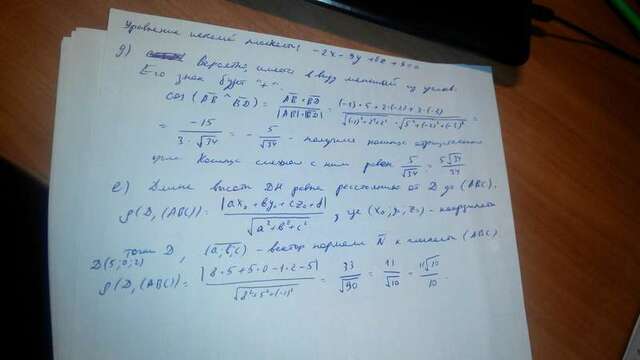 Уравнение искомой плоскости: -2x-9y+6z+8=0
д) Вероятно, имеется в виду меньший из углов.
Его знак будет "+".
cos(AB ^ BD) = AB·BD / |AB|·|BD| = (-1)·5+2·(-2)+2·(-2) / √(-1)²+2²+2² · √5²+(-2)²+(-2)² =
= -15 / 3·√34 = - 5/√34 - получили косинус отрицательного
угла. Косинус смежного с ним равен 5/√34 = 5√34/34
е) Длина высоты DH равна расстоянию от D до (ABC).
ρ(D,(ABC)) = |ax₀+by₀+cz₀+d| / √a²+b²+c² , где (x₀;y₀;z₀) - координаты
точки D, (a;b;c) - вектор нормали N к плоскости (ABC)
D(5;0;2)
ρ(D,(ABC)) = |8·5+5·0-1·2-5| / √8²+5²+(-1)² = 33/√90 = 11/√10 = 11√10/10